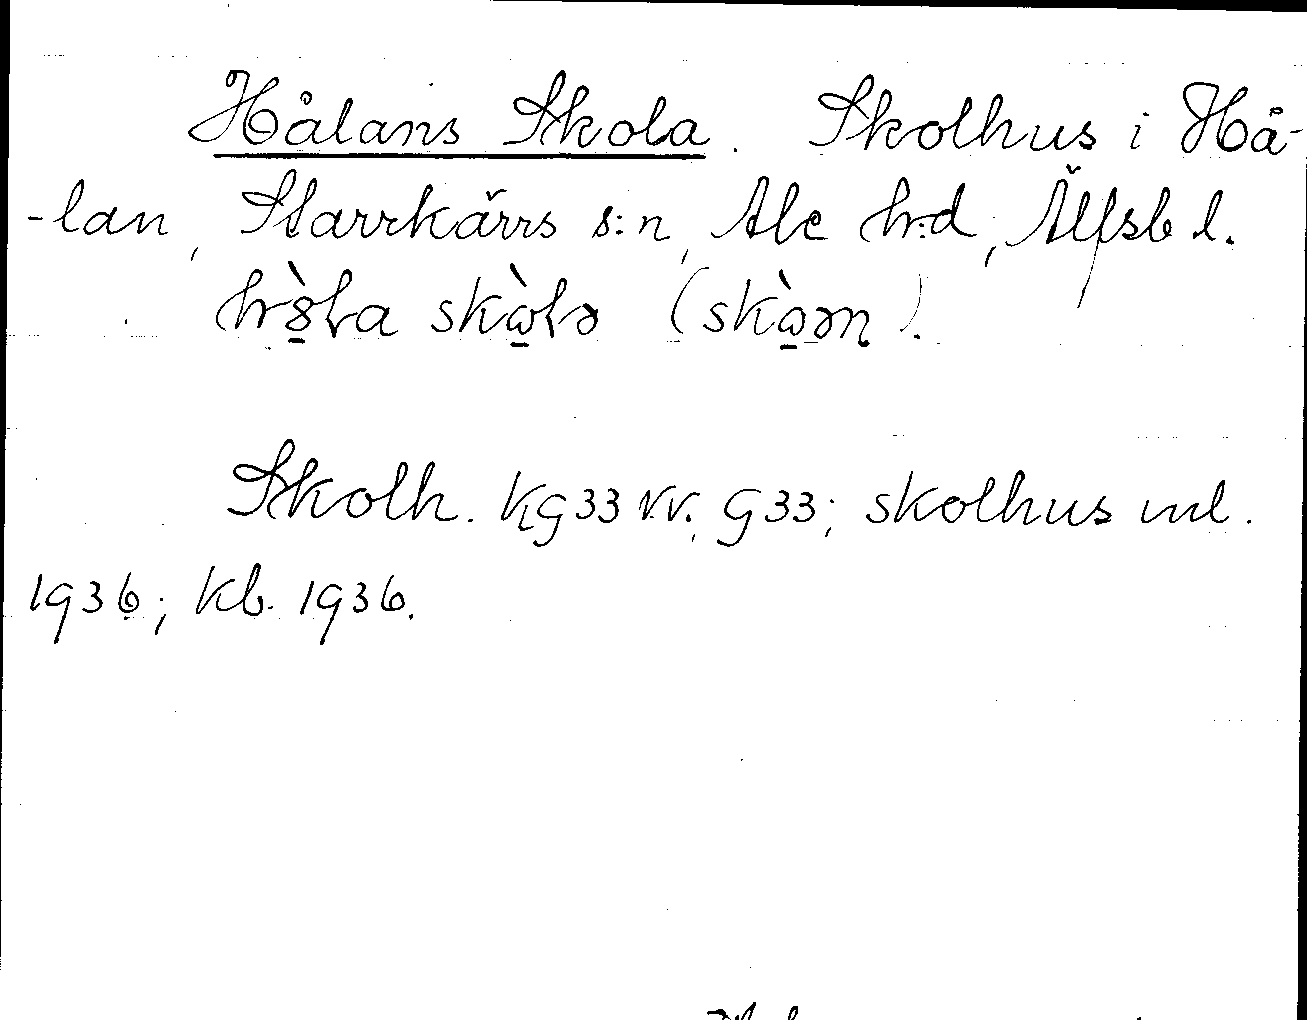 Hålans Skola. Skolhus i Hå-
-lan, Starrkärrs s:n, Ale h:d, Älfsb l.
skola (skoan).
Skolh. Kg33 NV. G33; skolhus ml.
1936; Kb. 1936.